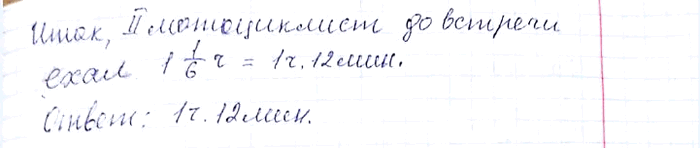 Итак, II мотоциклист до встречи
ехал 1 1/6 ч = 1ч. 12мин.
Ответ: 1ч. 12мин.